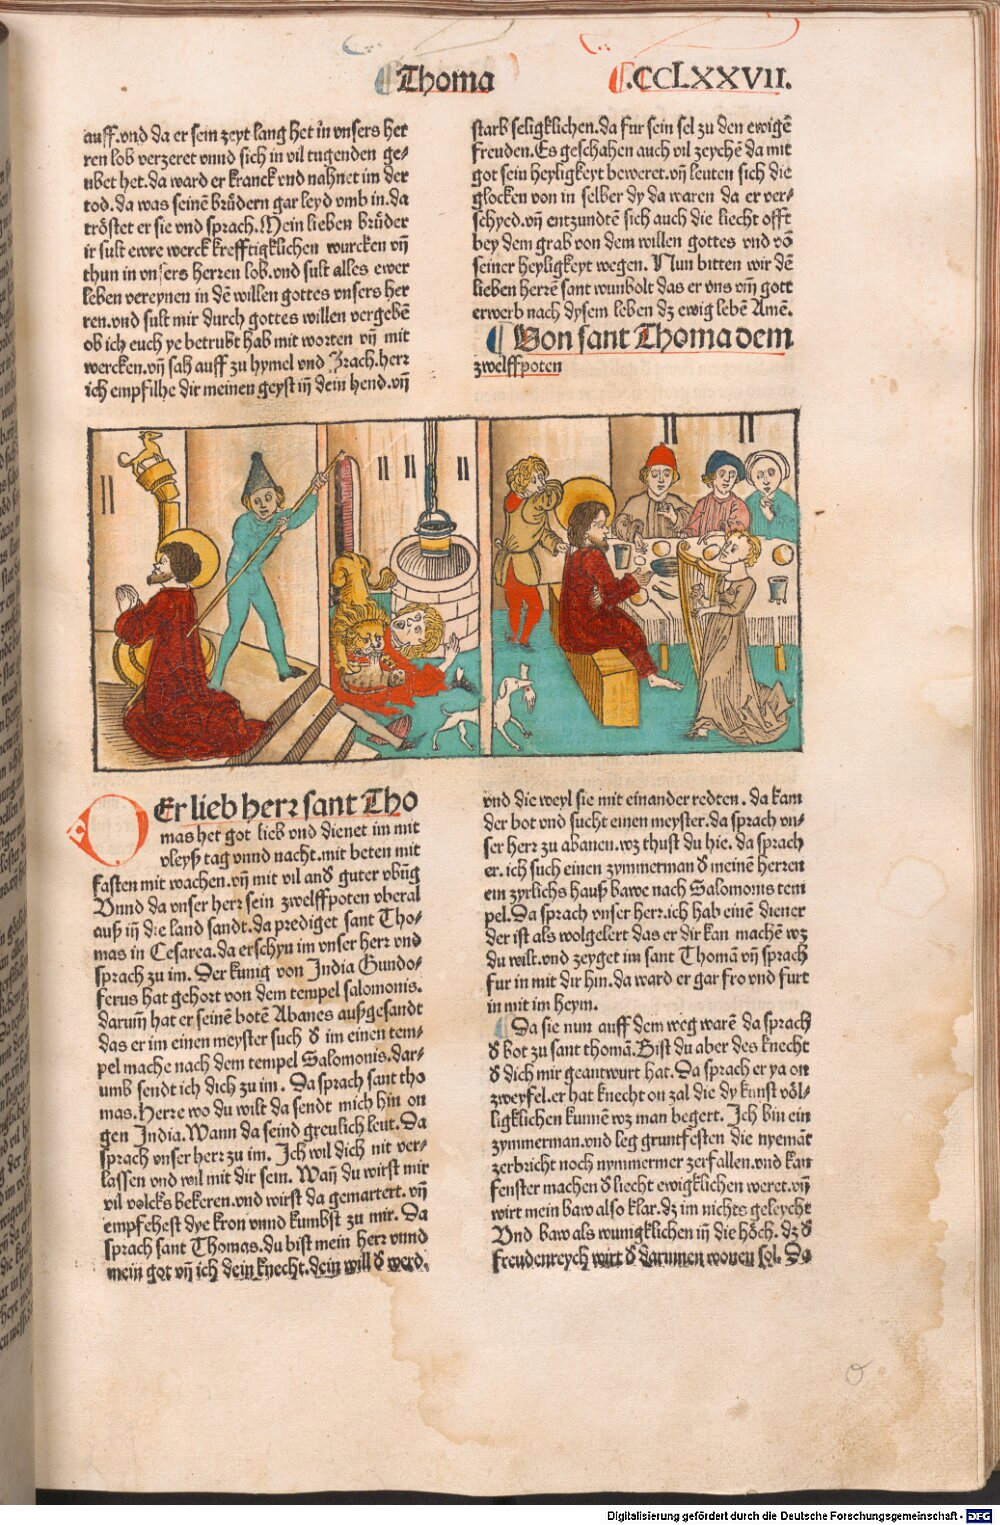 Thoma
.CCLXXVII.
auff.vnd da er sein zeyt lang het in vnsers her
ren lob verzeret vnnd sich in vil tugenden ge-
ubet het.da ward er kranck vnd nahnet im der
tod.da was seinẽ brůdern gar leyd vmb in.da
trőstet er sie vnd sprach.Mein lieben brůder
ir sult ewre werck krefftigklichen wurcken vñ
thun in vnsers herren lob.vnd sult alles ewer
leben vereynen in dẽ willen gottes vnsers her
ren.vnd sult mir durch gottes willen vergebẽ
ob ich euch ye betrubt hab mit worten vñ mit
wercken.vñ sah auff zu hymel vnd sprach.herr
ich empfilhe dir meinen geyst iñ dein hend.vñ
starb seligklichen.da fur sein sel zu den ewigẽ
freuden.Es geschahen auch vil zeychẽ da mit
got sein heyligkeyt beweret.vñ leuten sich die
glocken von in selber dy da waren da er ver-
schyed.vñ entzundtẽ sich auch die liecht offt
bey dem grab von dem willen gottes vnd võ
seiner heyligkeyt wegen. Nun bitten wir dẽ
lieben herrẽ sant wunbolt das er vns vm̃ gott
erwerb nach dysem leben dz ewig lebẽ Amẽ.
Von sant Thoma dem
zwelffpoten
Er lieb herr sant Tho
mas het got lieb vnd dienet im mit
vleyß tag vnnd nacht.mit beten mit
fasten mit wachen.vñ mit vil and̃ guter vbũg
Vnnd da vnser herr sein zwelffpoten vberal
auß iñ die land sandt.da prediget sant Tho-
mas in Cesarea.da erschyn im vnser herr vnd
sprach zu im. Der kunig von India Gundo-
ferus hat gehort von dem tempel salomonis.
darum̃ hat er seinẽ botẽ Abanes außgesandt
das er im einen meyster such d̃ im einen tem-
pel mache nach dem tempel Salomonis.dar-
umb sendt ich dich zu im. Da sprach sant tho
mas.Herre wo du wilt da sendt mich hin on
gen India.Wann da seind greulich leut.Da
sprach vnser herr zu im. Ich wil dich nit ver-
lassen vnd wil mit dir sein. Wañ du wirst mir
vil volcks bekeren.vnd wirst da gemartert.vñ
empfehest dye kron vnnd kumbst zu mir. Da
sprach sant Thomas.du bist mein herr vnnd
mein got vñ ich dein knecht.dein will d̃ werd.
vnd die weyl sie mit einander redten. da kam
der bot vnd sucht einen meyster.da sprach vn-
ser herr zu abanen.wz thust du hie. da sprach
er.ich such einen zymmerman d̃ meinẽ herren
ein zyrlichs hauß bawe nach Salomonis tem
pel.Da sprach vnser herr.ich hab einẽ diener
der ist als wolgelert das er dir kan machẽ wz
du wilt.vnd zeyget im sant Thomã vñ sprach
fur in mit dir hin.da ward er gar fro vnd furt
in mit im heym.
Da sie nun auff dem weg warẽ da sprach
d̃ bot zu sant thomã.Bist du aber des knecht
d̃ dich mir geantwurt hat.Da sprach er ya on
zweyfel.er hat knecht on zal die dy kunst vől-
ligklichen kunnẽ wz man begert. Ich bin ein
zymmerman.vnd leg gruntfesten die nyemãt
zerbricht noch nymmermer zerfallen.vnd kan
fenster machen d̃ liecht ewigklichen weret.vñ
wirt mein baw also klar.dz im nichts geleycht
Vnd baw als wunigklichen iñ die hőch. dz d̃
freudenreych wirt d̃ darinnen wonen sol. Da
Digitalisierung gefördert durch die Deutsche Forschungsgemeinschaft - DFG